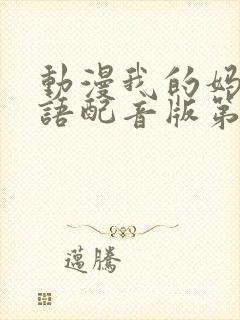 動漫我的媽
語配音版第
邁騰